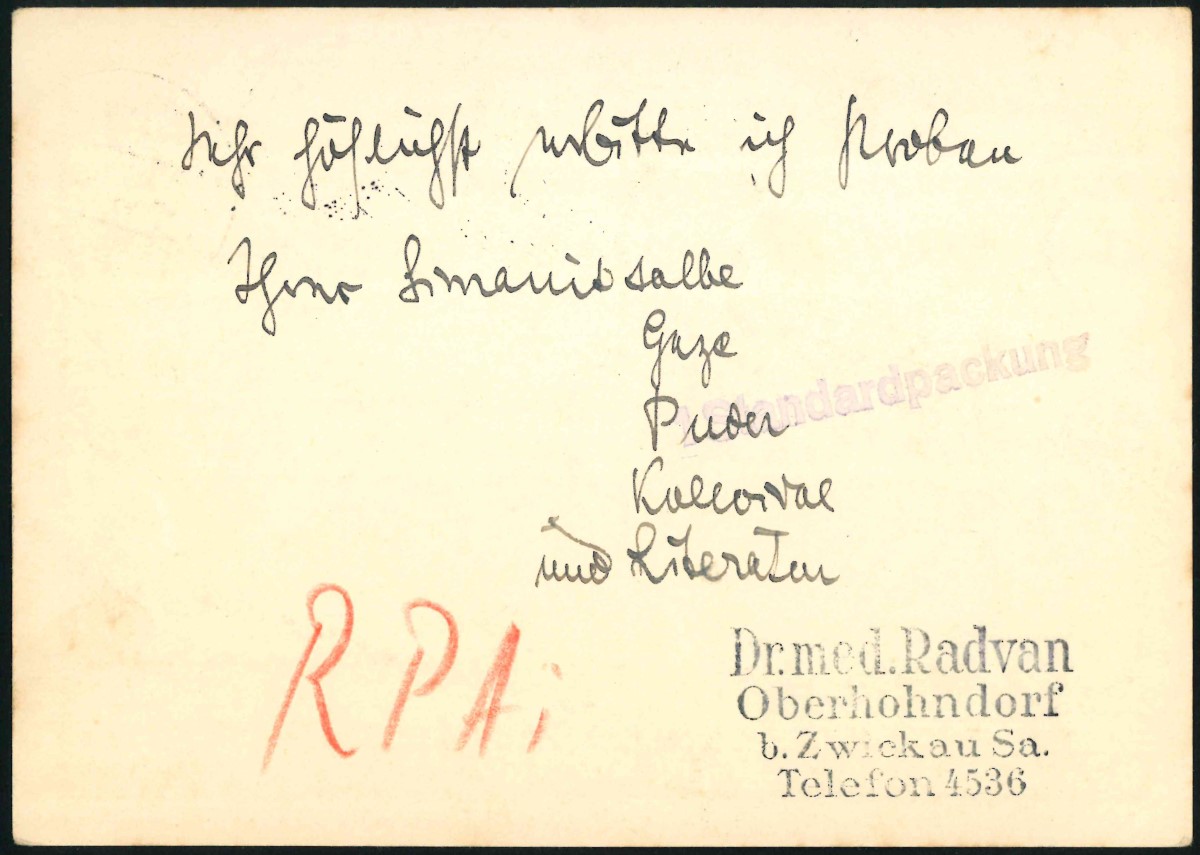 Sehr höflichst erbitte ich Proben
Ihrer salbe
Gaze
Puder
und Literatur
Standardpackung
R P A i
Dr. med. Radvan
Oberhohndorf
b. Zwickau Sa.
Telefon 4536